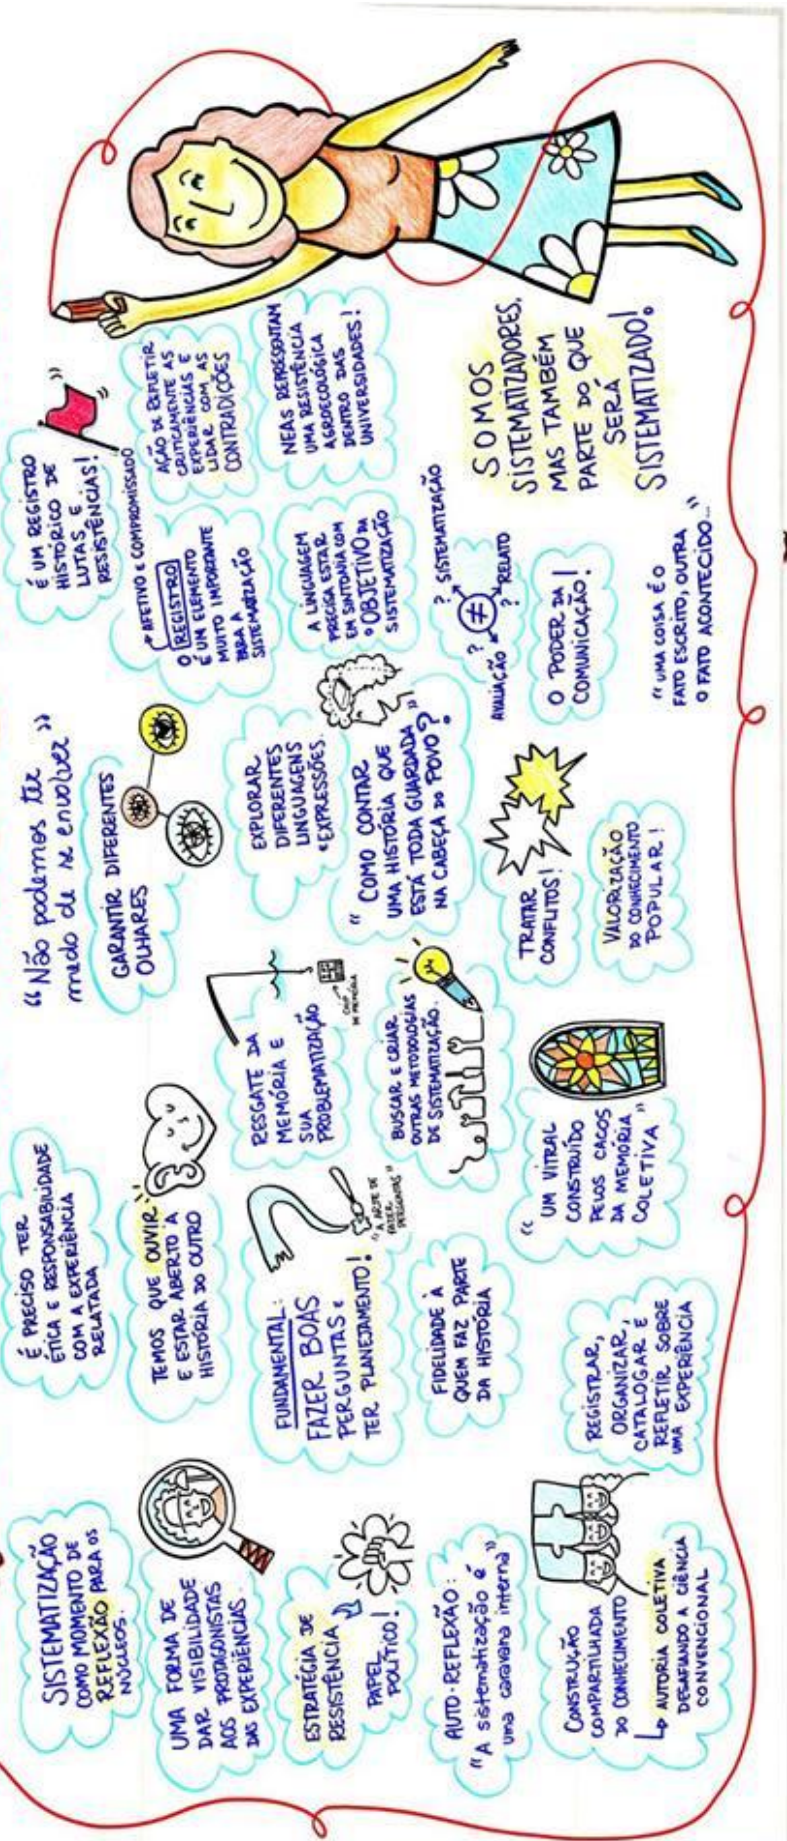 SISTEMATIZAÇÃO
COMO MOMENTO DE
REFLEXÃO PARA OS
NÚCLEOS.
UMA FORMA DE
DAR VISIBILIDADE
AOS PROTAGONISTAS
DAS EXPERIÊNCIAS.
ESTRATÉGIA DE
RESISTÊNCIA
PAPEL
POLÍTICO!
AUTO-REFLEXÃO:
"A sistematização é
uma caravana interna"
CONSTRUÇÃO
COMPARTILHADA
DO CONHECIMENTO
↳ AUTORIA COLETIVA
DESAFIANDO A CIÊNCIA
CONVENCIONAL
É PRECISO TER
ÉTICA E RESPONSABILIDADE
COM A EXPERIÊNCIA
RELATADA
TEMOS QUE OUVIR
E ESTAR ABERTO À
HISTÓRIA DO OUTRO
FUNDAMENTAL:
FAZER BOAS
PERGUNTAS E
TER PLANEJAMENTO!
"A ARTE DE
FAZER
PERGUNTAS"
FIDELIDADE À
QUEM FAZ PARTE
DA HISTÓRIA
REGISTRAR,
ORGANIZAR,
CATALOGAR E
REFLETIR SOBRE
UMA EXPERIÊNCIA
RESGATE DA
MEMÓRIA E
SUA
PROBLEMATIZAÇÃO
CHIP
DE MEMÓRIA
BUSCAR E CRIAR
OUTRAS METODOLOGIAS
DE SISTEMATIZAÇÃO.
"UM VITRAL
CONSTRUÍDO
PELOS CACOS
DA MEMÓRIA
COLETIVA"
"Não podemos ter
medo de se envolver"
GARANTIR DIFERENTES
OLHARES
EXPLORAR
DIFERENTES
LINGUAGENS
E EXPRESSÕES.
"COMO CONTAR
UMA HISTÓRIA QUE
ESTÁ TODA GUARDADA
NA CABEÇA DO POVO?"
TRATAR
CONFLITOS!
VALORIZAÇÃO
DO CONHECIMENTO
POPULAR!
É UM REGISTRO
HISTÓRICO DE
LUTAS E
RESISTÊNCIAS!
AFETIVO E COMPROMISSADO
O REGISTRO
É UM ELEMENTO
MUITO IMPORANTE
PARA A
SISTEMATIZAÇÃO
A LINGUAGEM
PRECISA ESTAR
EM SINTONIA COM
O OBJETIVO DA
SISTEMATIZAÇÃO
? SISTEMATIZAÇÃO
≠
AVALIAÇÃO ?
? RELATO
O PODER DA
COMUNICAÇÃO!
"UMA COISA É O
FATO ESCRITO, OUTRA
O FATO ACONTECIDO..."
AÇÃO DE REFLETIR
CRITICAMENTE AS
EXPERIÊNCIAS E
LIDAR COM AS
CONTRADIÇÕES
NEAS REPRESENTAM
UMA RESISTÊNCIA
AGROECOLÓGICA
DENTRO DAS
UNIVERSIDADES!
SOMOS
SISTEMATIZADORES,
MAS TAMBÉM
PARTE DO QUE
SERÁ
SISTEMATIZADO!